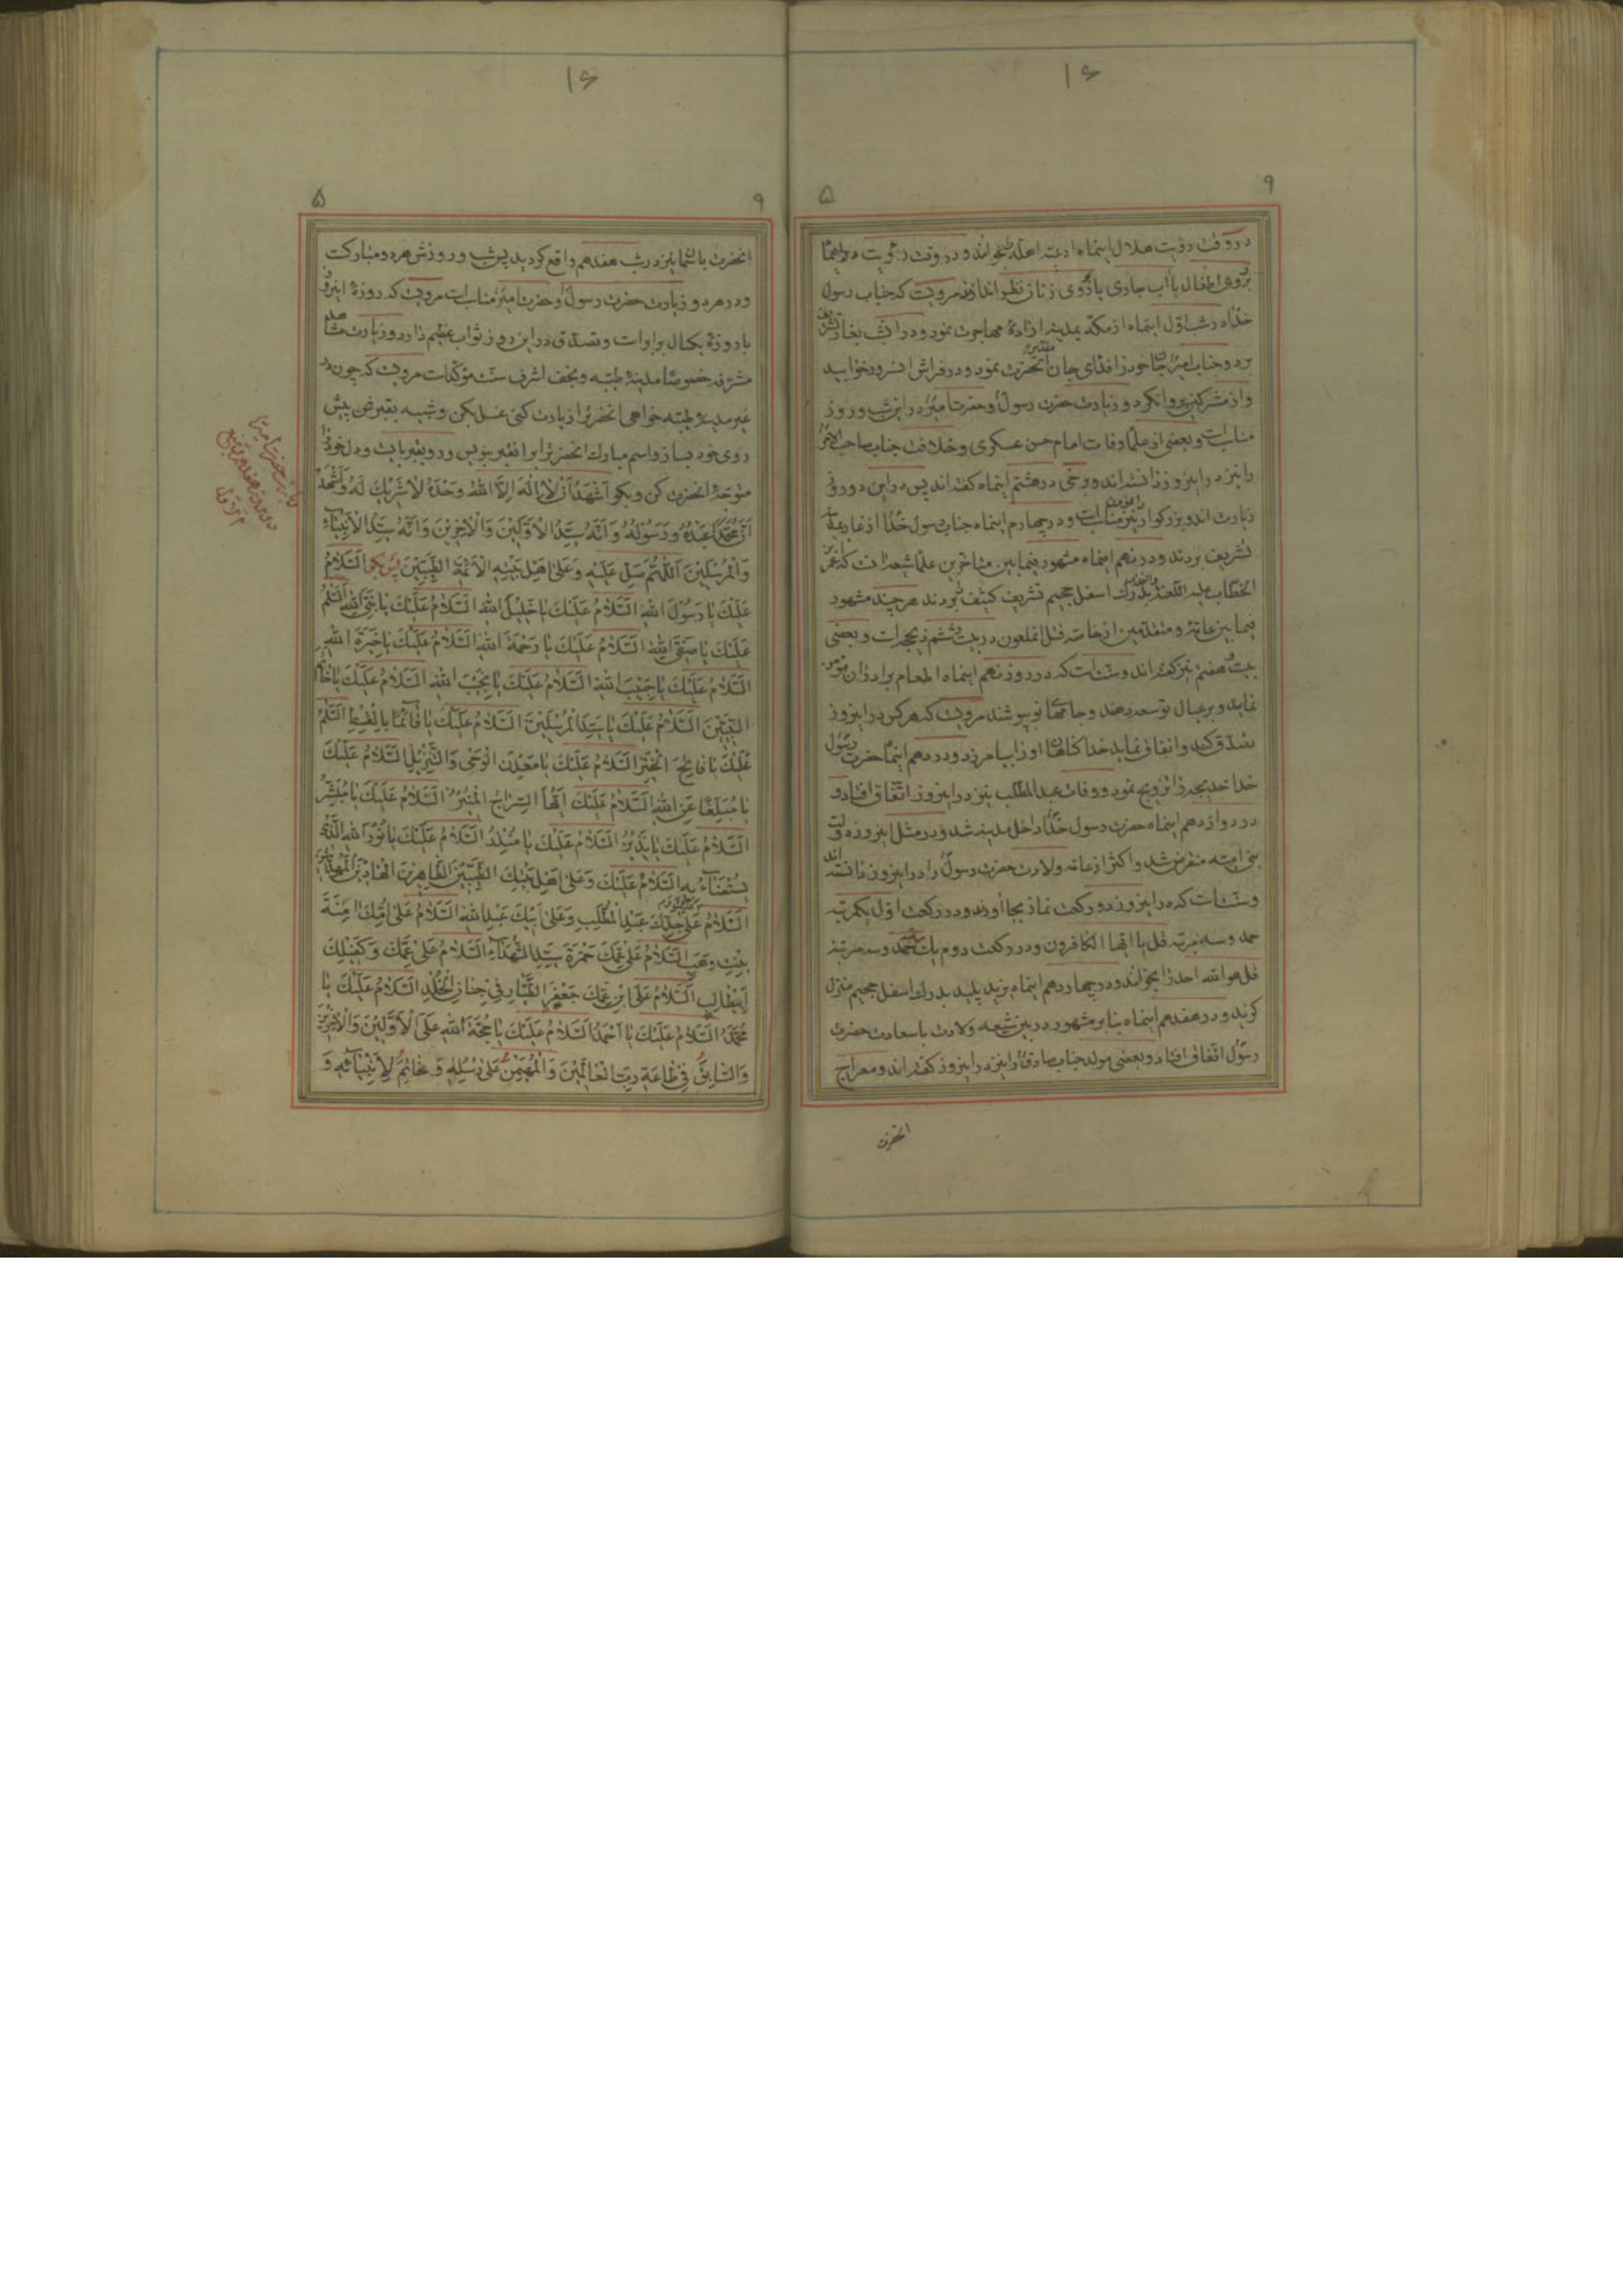 ۱۶
۹
۵
در وقت رؤیت هلال اینماه ادعیه اهله بخوانند و در وقت رؤیت
بروی اطفال یا آب جاری یا بروی زنان نظر اندازند مرویست که جناب رسول
خدا در شب اول اینماه از مکه بمدینه اراده مهاجرت نمود و در آن شب بغار تشریف
برد و جناب امیر جان خود را فدای جان آنحضرت نمود و در فراش انسرور خوابید
و از مشرکین پروا نکرد و زیارت حضرت رسول و حضرت امیر در این شب و روز
مناسب است و بعضی از علما وفات امام حسن عسکری و خلافت جناب صاحب الامر
را نیز در این روز دانسته اند و برخی در هشتم اینماه گفته اند پس در این دو روز
زیارت اندو بزرگوار نیز مناسب است و در چهارم اینماه جناب رسول خدا از غار بمدینه
تشریف بردند و در نهم اینماه مشهور فیمابین متاخرین علما شیعه آنست که عمر
الخطاب علیه اللعنة بدرک اسفل جحیم تشریف کثیف بردند هر چند مشهور
فیما بین عامه و متقدمین از خاصه قتل انملعون در بیست و ششم ذیحجه است و بعضی
بیست و هفتم نیز گفته اند و سنت است که در روز نهم اینماه اطعام برادران مؤمن
نماید و بر عیال توسعه دهند و جامهای نو بپوشند مرویست که هر کس در این روز
تصدق کند و انفاق نماید خدا گناهان او را بیامرزد و در دهم اینماه حضرت رسول
خدا خدیجه را تزویج نمود و وفات عبدالمطلب نیز در این روز اتفاق افتاد و
در دوازدهم اینماه حضرت رسول خدا داخل مدینه شد و در مثل این روز دولت
بنی امیه منقرض شد و اکثر از عامه ولادت حضرت رسول را در این روز دانسته اند
و سنت است که در این روز دو رکعت نماز بجا آورند و در رکعت اول یکمرتبه
حمد و سه مرتبه قل یا ایها الکافرون و در رکعت دوم یک مرتبه حمد و سه مرتبه
قل هو الله احد را بخوانند و در چهاردهم اینماه یزید پلید بدرک اسفل جحیم منزل
گزید و در هفدهم اینماه بنابر مشهور در بین شیعه ولادت با سعادت حضرت
رسول اتفاق افتاد و بعضی مولد جناب صادق را نیز در این روز گفته اند و معراج
انحضرت
۱۶
۹
۵
انحضرت باسما نیز در شب هفدهم واقع گردید پس شب و روزش هر دو مبارکست
و در هر دو زیارت حضرت رسول و حضرت امیر مناسب است مرویست که روزه این روز
با روزه یکسال برابر است و تصدق در این روز ثواب عظیم دارد و زیارت مشاهد
مشرفه خصوصا مدینه طیبه و نجف اشرف سنت مؤکد است مرویست که چون در
غیر مدینه طیبه خواهی انحضرترا زیارت کنی غسل بکن و شبیه بقبر در پیش
روی خود بساز و اسم مبارک انحضرترا بر انقبر بنویس و رو بقبر بایست و دل خود را
متوجه انحضرت کن و بگو اَشْهَدُ اَنْ لا اِلهَ اِلاَّ اللهُ وَحْدَهُ لا شَریكَ لَهُ وَاَشْهَدُ
اَنَّ مُحَمَّداً عَبْدُهُ وَرَسُولُهُ وَاَنَّهُ سَیِّدُ الْاَوَّلینَ وَالْاخِرینَ وَاَنَّهُ سَیِّدُ الْاَنْبِیاءِ
وَالْمُرْسَلینَ اَللّهُمَّ صَلِّ عَلَیْهِ وَعَلی اَهْلِ بَیْتِهِ الْاَئِمَّةِ الطَّیِّبینَ پس بگو اَلسَّلامُ
عَلَیْكَ یا رَسُولَ اللهِ اَلسَّلامُ عَلَیْكَ یا خَلیلَ اللهِ اَلسَّلامُ عَلَیْكَ یا نَبِیَّ اللهِ اَلسَّلامُ
عَلَیْكَ یا صَفِیَّ اللهِ اَلسَّلامُ عَلَیْكَ یا رَحْمَةَ اللهِ اَلسَّلامُ عَلَیْكَ یا خِیَرَةَ اللهِ
اَلسَّلامُ عَلَیْكَ یا حَبیبَ اللهِ اَلسَّلامُ عَلَیْكَ یا نَجیبَ اللهِ اَلسَّلامُ عَلَیْكَ یا خاتَمَ
النَّبِیّینَ اَلسَّلامُ عَلَیْكَ یا سَیِّدَ الْمُرْسَلینَ اَلسَّلامُ عَلَیْكَ یا قآئِماً بِالْقِسْطِ اَلسَّلامُ
عَلَیْكَ یا فاتِحَ الْخَیْرِ اَلسَّلامُ عَلَیْكَ یا مَعْدِنَ الْوَحْیِ وَالتَّنْزیلِ اَلسَّلامُ عَلَیْكَ
یا مُبَلِّغاً عَنِ اللهِ اَلسَّلامُ عَلَیْكَ اَیُّهَا السِّراجُ الْمُنیرُ اَلسَّلامُ عَلَیْكَ یا مُبَشِّرُ
اَلسَّلامُ عَلَیْكَ یا نَذیرُ اَلسَّلامُ عَلَیْكَ یا مُنْذِرُ اَلسَّلامُ عَلَیْكَ یا نُورَ اللهِ الَّذی
یُسْتَضآءُ بِهِ اَلسَّلامُ عَلَیْكَ وَعَلی اَهْلِ بَیْتِكَ الطَّیِّبینَ الطّاهِرینَ الْهادینَ الْمَهْدِیّینَ
اَلسَّلامُ عَلَیْكَ وَعَلی جَدِّكَ عَبْدِ الْمُطَّلِبِ وَعَلی اَبیكَ عَبْدِ اللهِ اَلسَّلامُ عَلی اُمِّكَ امِنَةَ
بِنْتِ وَهَبٍ اَلسَّلامُ عَلی عَمِّكَ حَمْزَةَ سَیِّدِ الشُّهَدآءِ اَلسَّلامُ عَلی عَمِّكَ وَكَفیلِكَ
اَبیطالِبٍ اَلسَّلامُ عَلَی ابْنِ عَمِّكَ جَعْفَرٍ الطَّیّارِ فی جِنانِ الْخُلْدِ اَلسَّلامُ عَلَیْكَ یا
مُحَمَّدُ اَلسَّلامُ عَلَیْكَ یا اَحْمَدُ اَلسَّلامُ عَلَیْكَ یا حُجَّةَ اللهِ عَلَی الْاَوَّلینَ وَالْاخِرینَ
وَالسّابِقُ فی طاعَةِ رَبِّ الْعالَمینَ وَالْمُهَیْمِنُ عَلی رُسُلِهِ وَخاتِمٌ لِاَنْبِیآئِهِ وَ